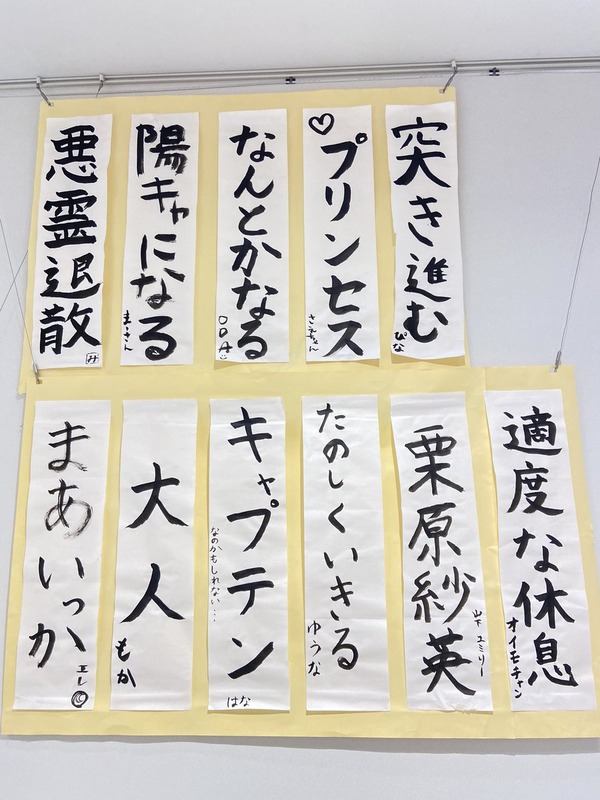 突き進む
ぴな
♡プリンセス
さえちゃん
なんとかなる
ODA
陽キャになる
まーさん
悪霊退散
み
適度な休息
オイモチャン
栗原紗英
山下 エミリー
たのしくいきる
ゆうな
キャプテン
なのかもしれない…
はな
大人
もか
まあいっか